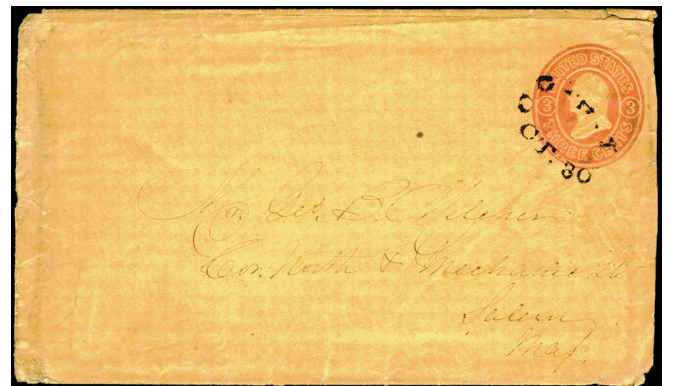 UNITED STATES
3 3
THREE CENTS
OCT. 30
Mrs. Geo. B.
Cor. North & Mechanic St
Salem
Mass.